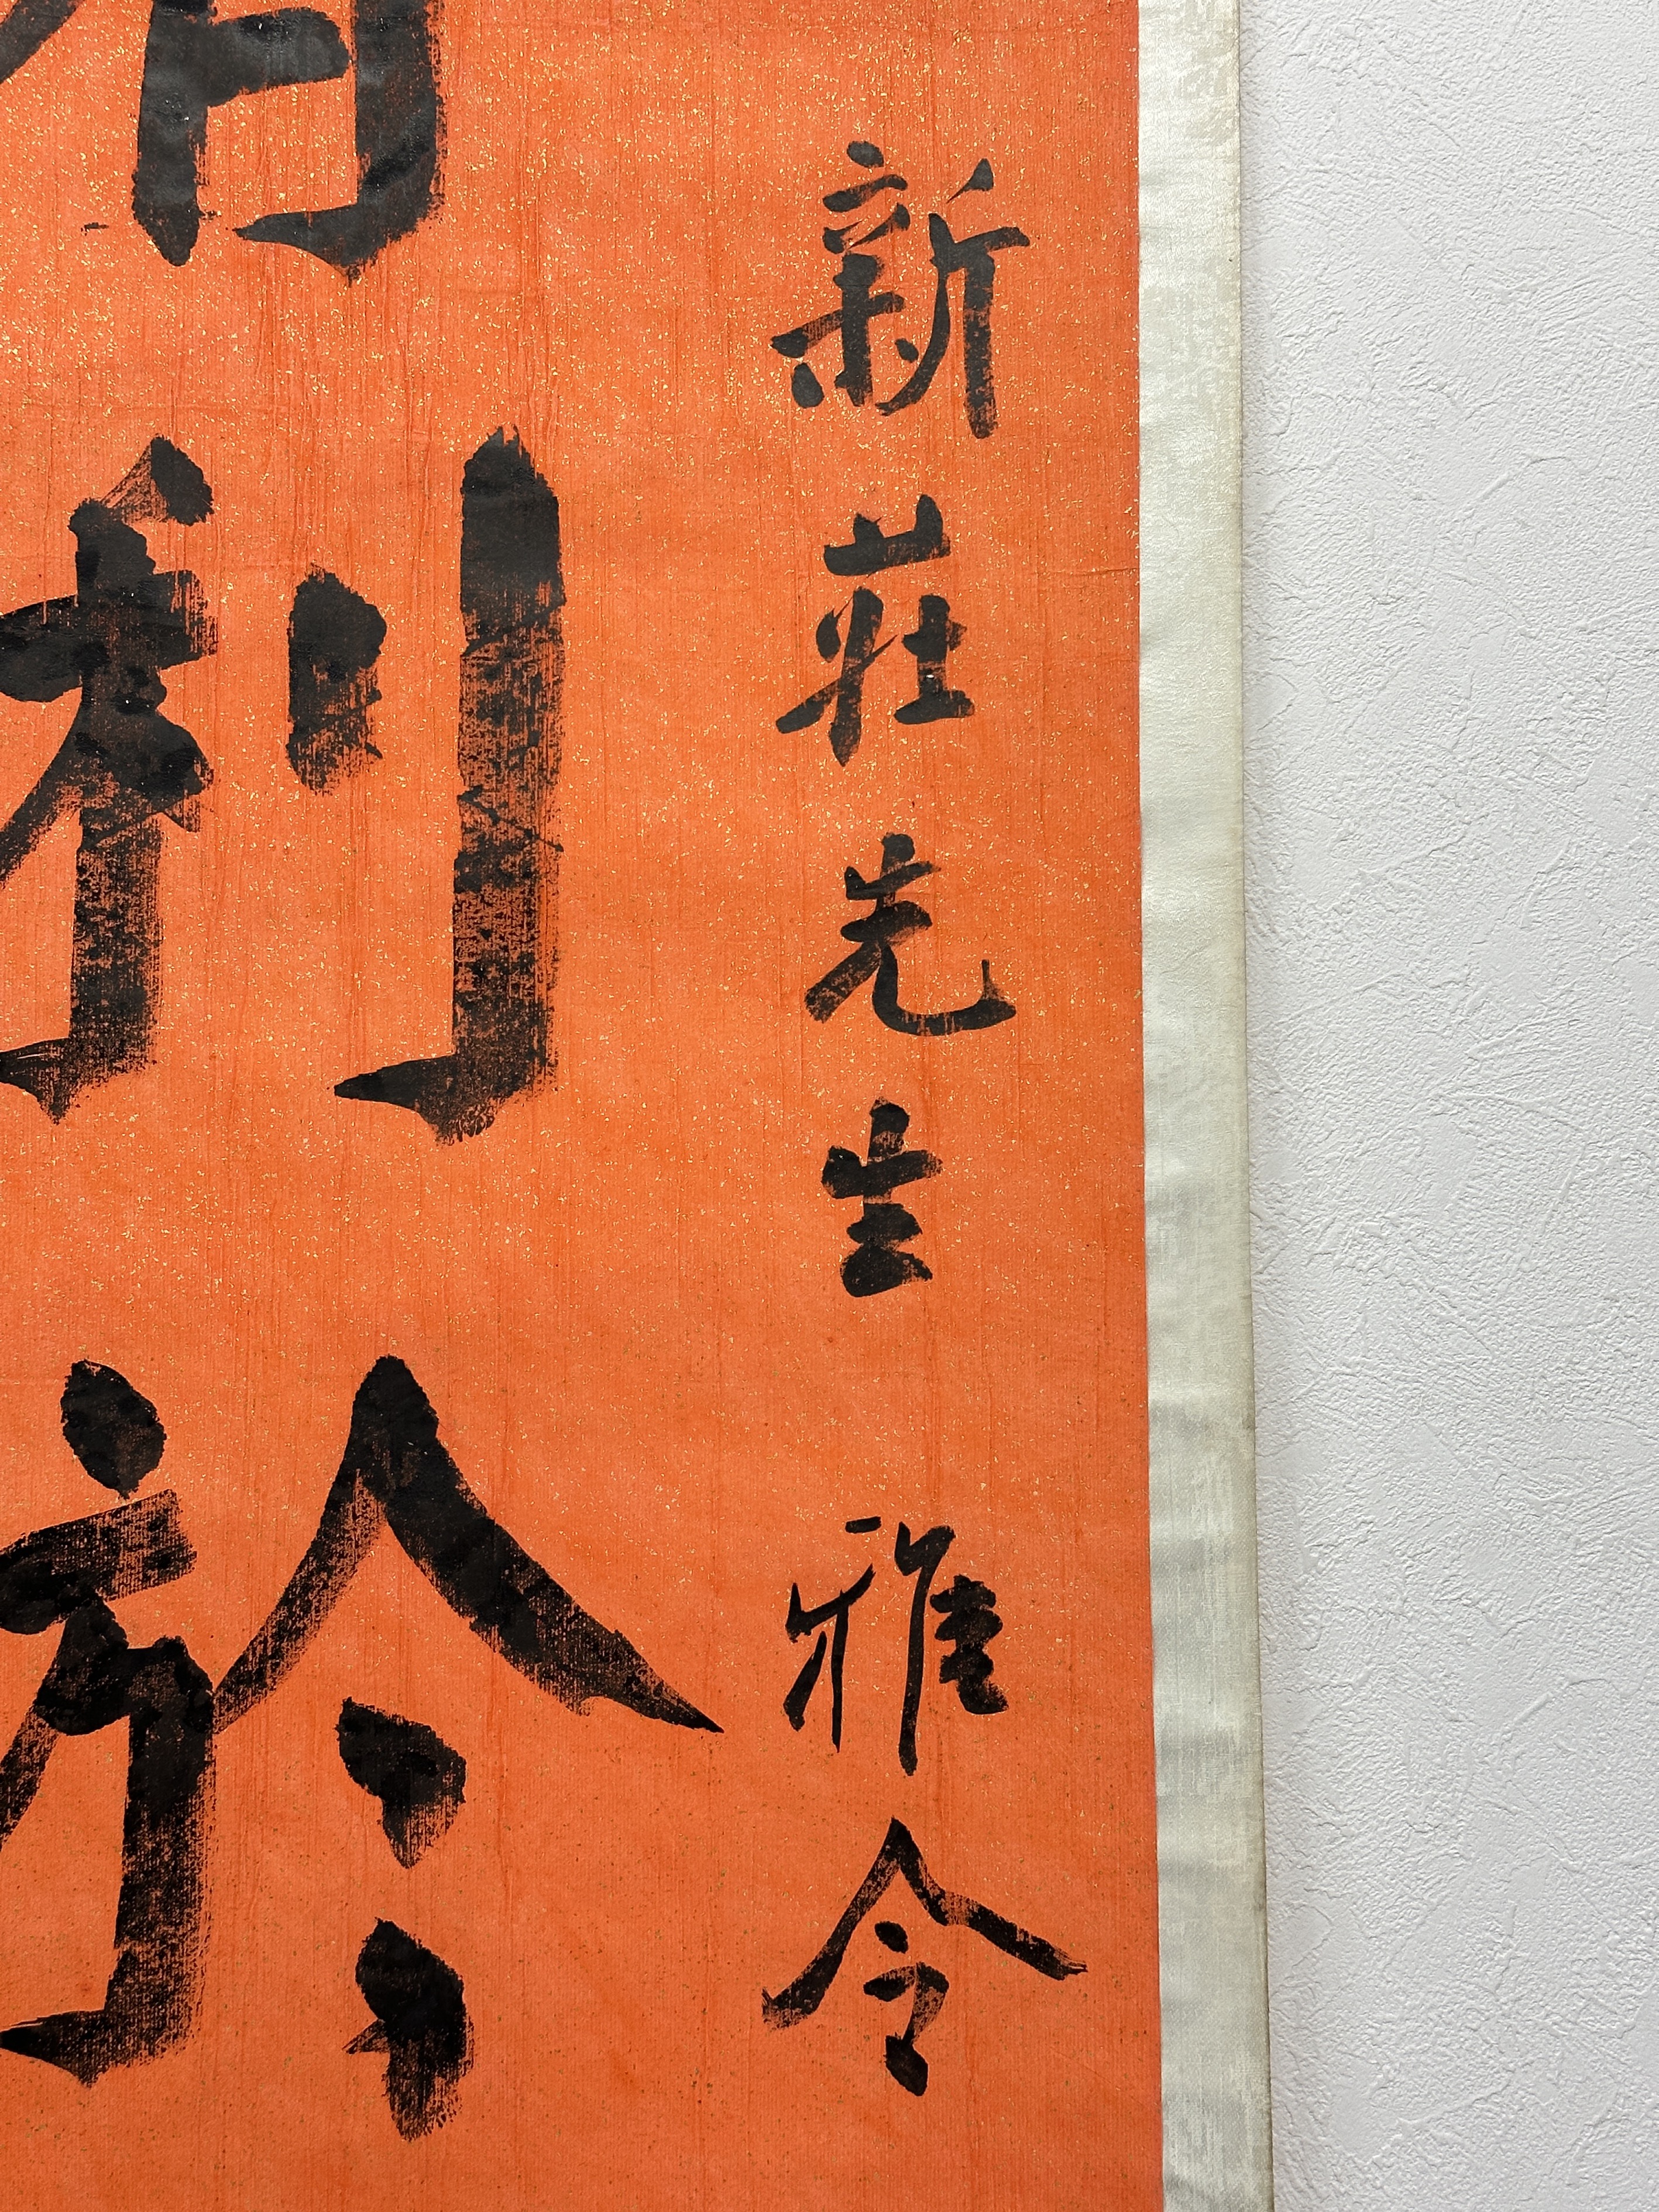 新莊先生 雅令
利於